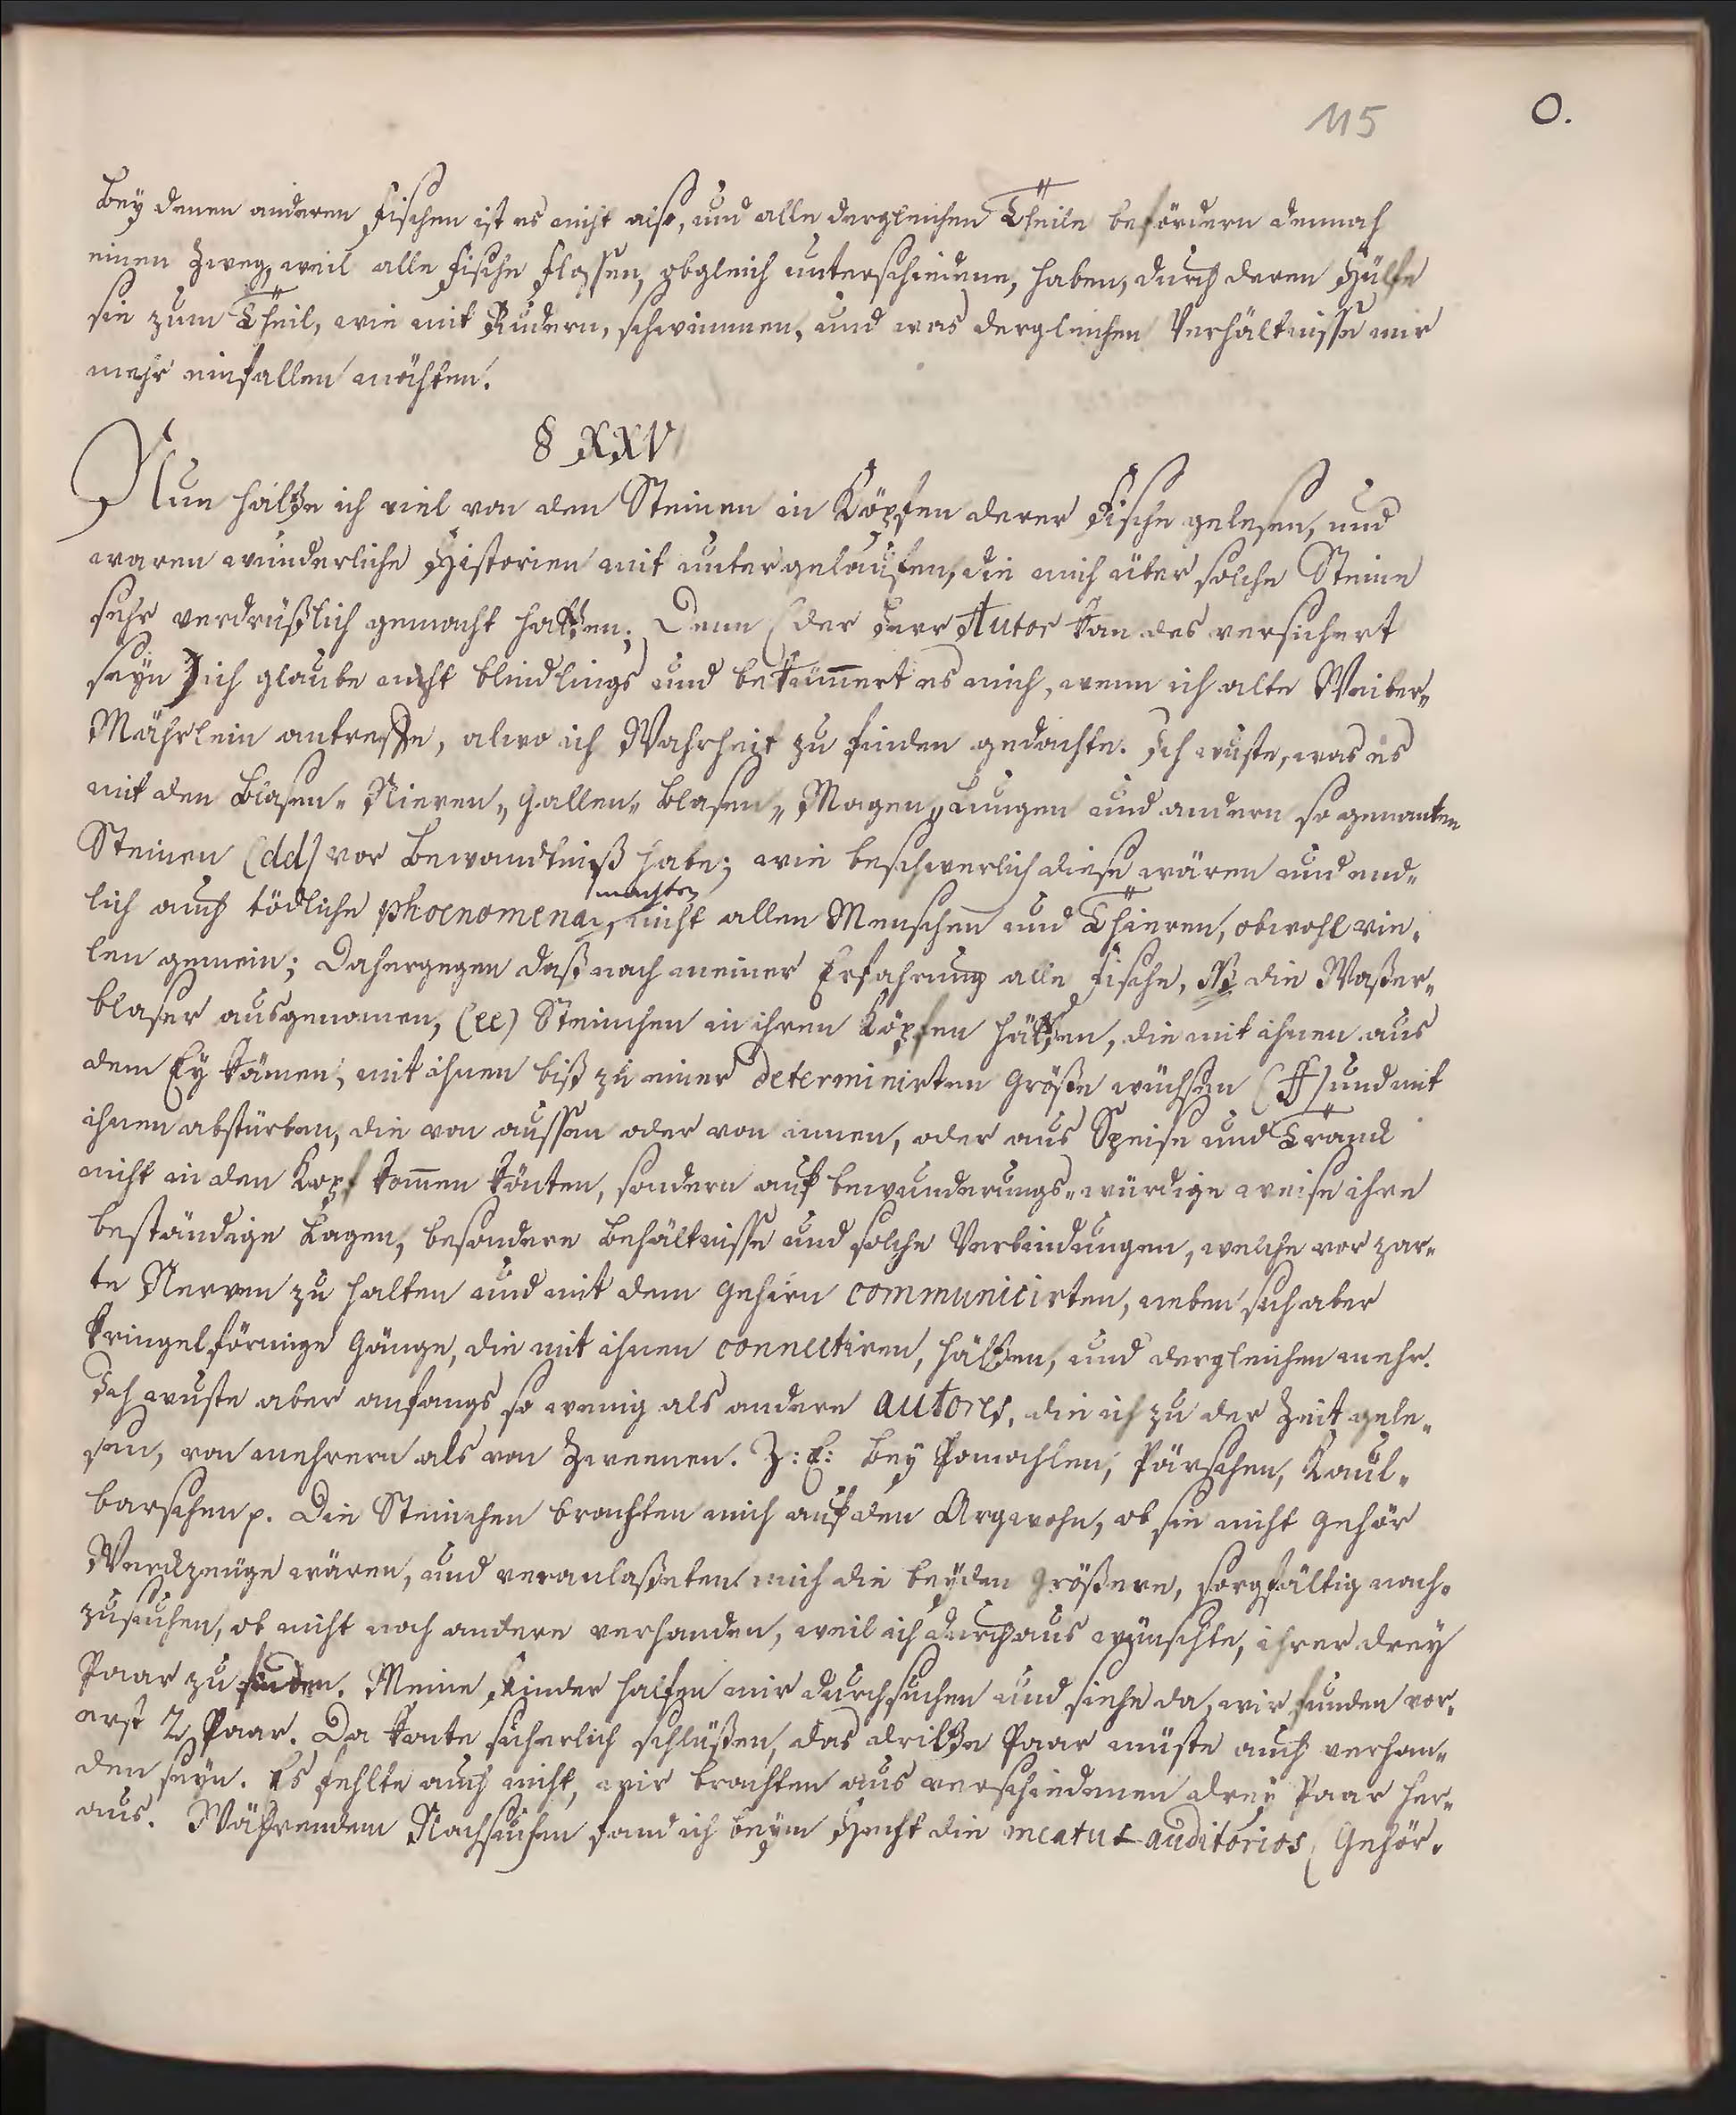 115
O.
Bey denen anderen Fischen ist es nicht also, und alle dergleichen Theile befördern dennoch
einen Zweg, weil alle Fische Flossen, obgleich unterschiedene, haben, durch deren Hülfe
sie zum Theil, wie mit Rudern, schwimmen, und was dergleichen Verhältnisse mir
mehr einfallen möchten.
§ XXV
Nun hatte ich viel von den Steinen in Köpfen derer Fische gelesen, und
waren wunderliche Historien mit untergelaufen, die mich über solche Steine
sehr verdrüßlich gemacht hatten; Denn (der Herr Autor kan des versichert
seyn) ich glaube nicht blindlings und bekümert es mich, wenn ich alte Weiber„
Mährlein antreffe, alwo ich Wahrheit zu finden gedachte. Ich wuste, was es
mit den Blasen„ Nieren„ Gallen„ Blasen„ Magen„ Lungen und andern so genanten
Steinen (dd) vor Bewandtniß habe; wie beschwerlich diese wären und end„
lich auch tödliche phoenomena machten, nicht allen Menschen und Thieren, obwohl vie„
len gemein; Dahergegen daß nach meiner Erfahrung alle Fische, NB die Waßer„
blaser ausgenomen, (ee) Steinchen in ihren Köpfen hätten, die mit ihnen aus
dem Ey kämen, mit ihnen biß zu einer determinirten Größe wüchsen (ff) und mit
ihnen abstürben, die von aussen oder von innen, oder aus Speise und Tranck
nicht in den Kopf komen könten, sondern auf bewunderungs„würdige weise ihre
beständige Lagen, besondere Behältnisse und solche Verbindungen, welche vor zar„
te Nerven zu halten und mit dem Gehirn communicirten, neben sich aber
kringelförmige Gänge, die mit ihnen connectiren, hätten, und dergleichen mehr.
Ich wuste aber anfangs so wenig als andere autores, die ich zu der Zeit gele„
sen, von mehrern als von Zweenen. Z: E: bey Pomochlen, Pärschen, Kaul„
barschen p. Die Steinchen brachten mich auf den Argwohn, ob sie nicht Gehör
Werckzeuge wären, und veranlaßeten mich die beyden Größere, sorgfältig nach„
zusuchen, ob nicht noch andere verhanden, weil ich durchaus wünschte, ihrer drey
Paar zu finden. Meine Kinder halfen mir durchsuchen und siehe da, wir funden vor„
erst 2 Paar. Da konte sicherlich schlüßen, das dritte Paar müste auch verhan„
den seyn. Es fehlte auch nicht, wir brachten aus verschiedenen drey Paar her„
aus. Währendem Nachsuchen fand ich beym Hecht die meatus auditorios (Gehör„